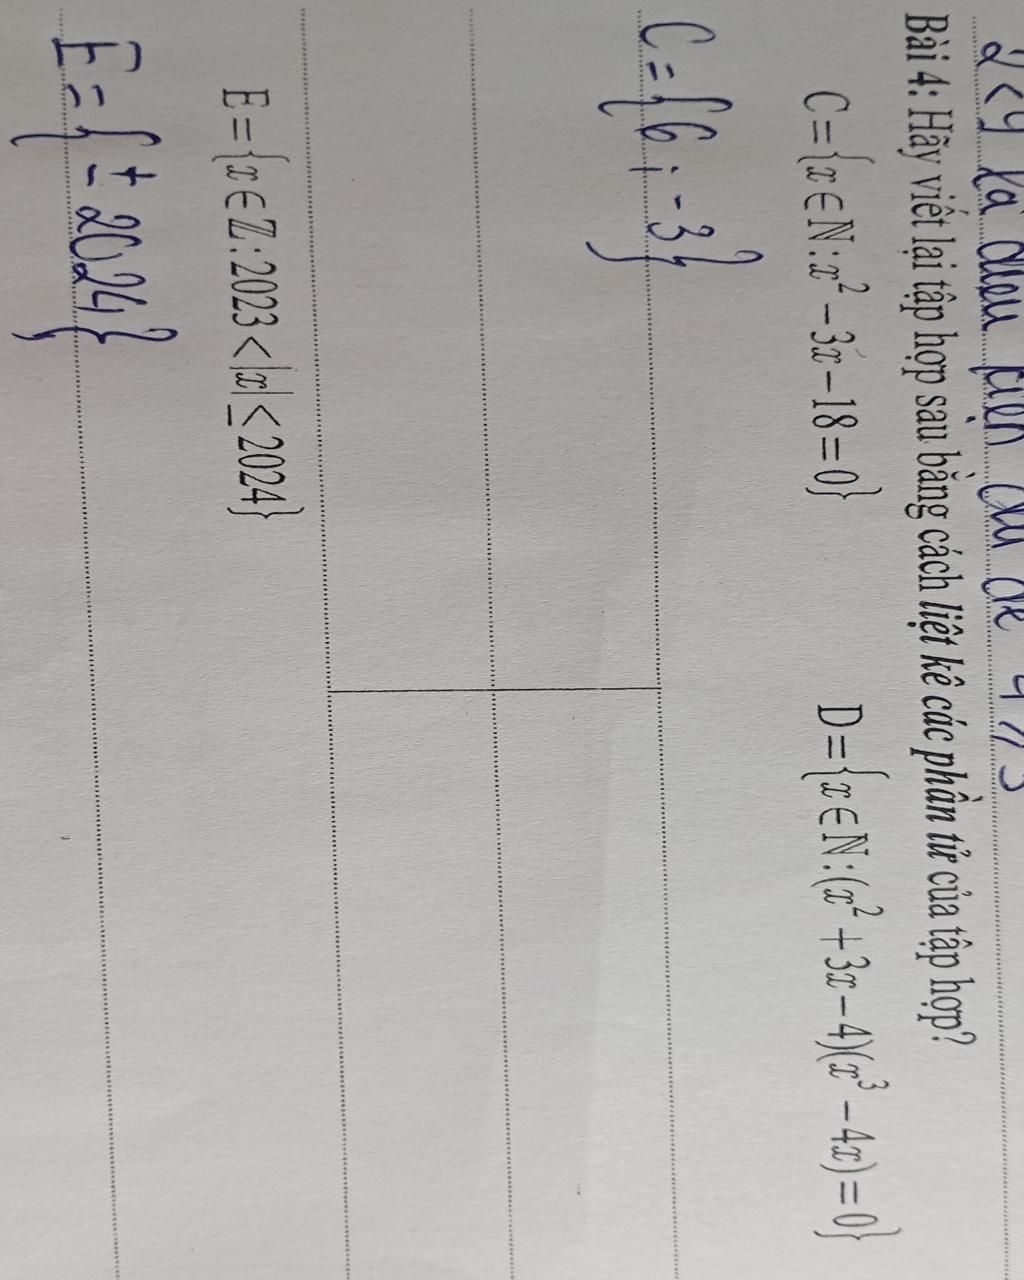 2 < y là điều kiện đủ để y ⩾ 3
Bài 4: Hãy viết lại tập hợp sau bằng cách liệt kê các phần tử của tập hợp?
C = {x ∈ ℕ : x² − 3x − 18 = 0} D = {x ∈ ℕ : (x² + 3x − 4)(x³ − 4x) = 0}
C = {6 ; -3}
E = {x ∈ ℤ : 2023 < |x| ≤ 2024}
E = {± 2024}